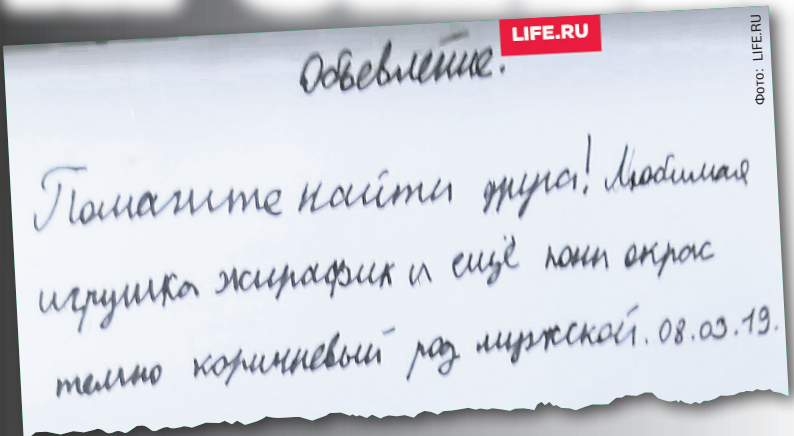 LIFE.RU
Фото: LIFE.RU
Объевление.
Помагите найти друга! Любимая
игрушка жирафик и ещё пони окрас
темно коричневый рад мужской. 08.03.19.